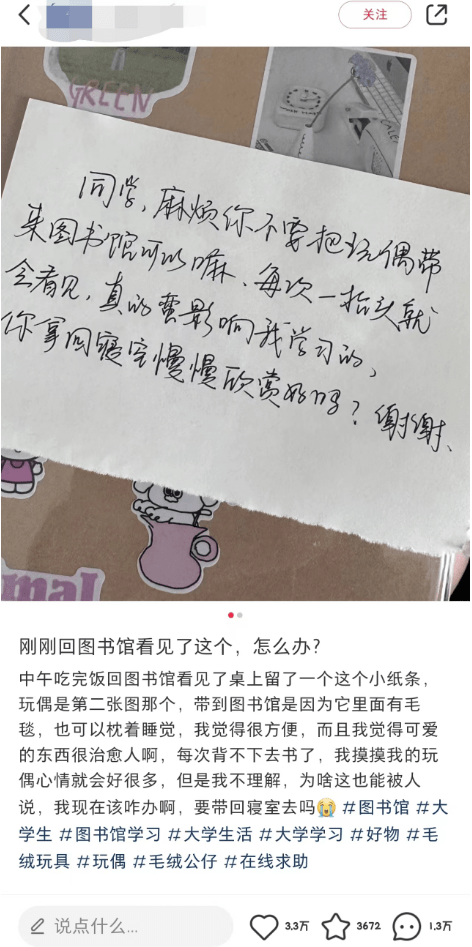 关注
GREEN
同学,麻烦你不要把玩偶带
来图书馆可以嘛、每次一抬头就
会看见,真的蛮影响我学习的,
你拿回寝室慢慢欣赏好吗?谢谢、
mal
刚刚回图书馆看见了这个,怎么办?
中午吃完饭回图书馆看见了桌上留了一个这个小纸条,
玩偶是第二张图那个,带到图书馆是因为它里面有毛
毯,也可以枕着睡觉,我觉得很方便,而且我觉得可爱
的东西很治愈人啊,每次背不下去书了,我摸摸我的玩
偶心情就会好很多,但是我不理解,为啥这也能被人
说,我现在该咋办啊,要带回寝室去吗😭 #图书馆 #大
学生 #图书馆学习 #大学生活 #大学学习 #好物 #毛
绒玩具 #玩偶 #毛绒公仔 #在线求助
说点什么...
3.3万
3672
1.3万